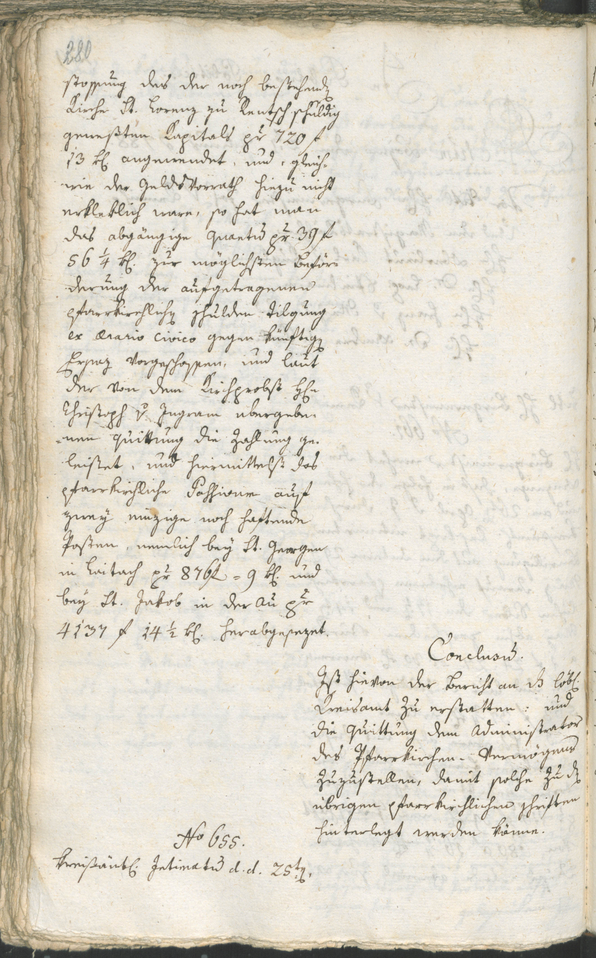 280
stossung des der noch bestehend
Kirche St. Lorenz zu Rentsch schuldig
gewesten Kapitals pr 720 f
13 kr. angewendet, und, gleich-
wie der Geldsvorrath hiezu nicht
erklecklich ware, so hat man
das abgängige Quantum pr 39 f
56 1/4 kr. zur möglichsten Beför-
derung der aufgetragenen
pfarrkirchlichen Schulden Tilgung
ex Ærario Civico gegen künftig
Ersaz vorgeschossen, und laut
der von dem Kirchprobst Hh
Christoph v. Ingram übergebe-
nen Quittung die Zahlung ge-
leistet, und hiermittelst das
pfarrkirchliche Passivum auf
zwey einzige noch haftende
Posten, nemlich bey St. Georgen
in Laitach pr 876 f - 9 kr. und
bey St. Jakob in der Au pr
4137 f 14 1/2 kr. herabgesezet.
Conclusum.
Ist hievon der Bericht an ds löbl.
Kreisamt zu erstatten: und
die Quittung dem Administrator
des Pfarrkirchen-Vermögens
zuzustellen, damit solche zu den
übrigen pfarrkirchlichen Schriften
hinterlegt werden könne.
No 655.
Kreisämtl. Intimatum d.d. 25ten